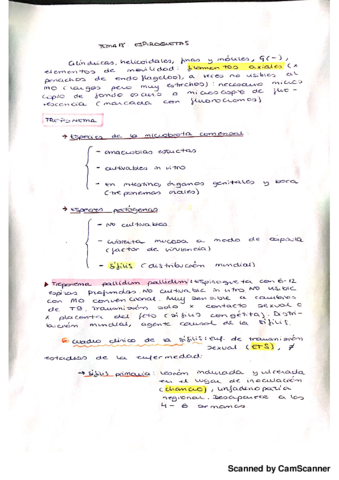 TEMA 18 ESPIROQUETAS
Cilíndricas, helicoidales, finas y móviles, G(-),
elementos de movilidad: filamentos axiales (x
penachos de endoflagelos), a veces no visibles al
MO (largos pero muy estrechos): necesario micros
copio de fondo oscuro o microscopio de fluo-
rescencia (marcada con fluorocromos)
TREPONEMA
→ Especies de la microbiota comensal
- anaerobias estrictas
- cultivables in vitro
- en intestino, órganos genitales y boca
(treponemas orales)
→ Especies patógenas
- No cultivables
- cubierta mucosa a modo de cápsula
(factor de virulencia)
- Sífilis (distribución mundial)
Treponema pallidum pallidum: Espiroqueta con 6-12
espiras profundas No cultivable in vitro No visible
con MO convencional. Muy sensible a cambios
de Tª. Transmisión solo x contacto sexual o
x placenta del feto (sífilis congénita). Distri-
bución mundial, agente causal de la sífilis.
Cuadro clínico de la sífilis: enf. de transmisión
sexual (ETS),
estadios de la enfermedad:
→ Sífilis primaria: Lesión indurada y ulcerada
en el lugar de inoculación
(chancro), linfadenopatía
regional. Desaparece a las
4-6 semanas
Scanned by CamScanner